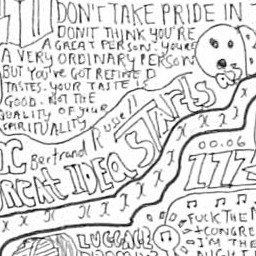 DON'T TAKE PRIDE IN
DON'T THINK YOU'RE
A GREAT PERSON. YOU'RE
A VERY ORDINARY PERSON
BUT YOU'VE GOT REFINED
TASTES. YOUR TASTE IS
GOOD. NOT THE
QUALITY OF YOUR
SPIRITUALITY
Bertrand Russell
GREAT IDEA STARTS as
00.06
ZZZ
FUCK THE
+CONGRE
I'M THE
NIGHT
LUGGAGE